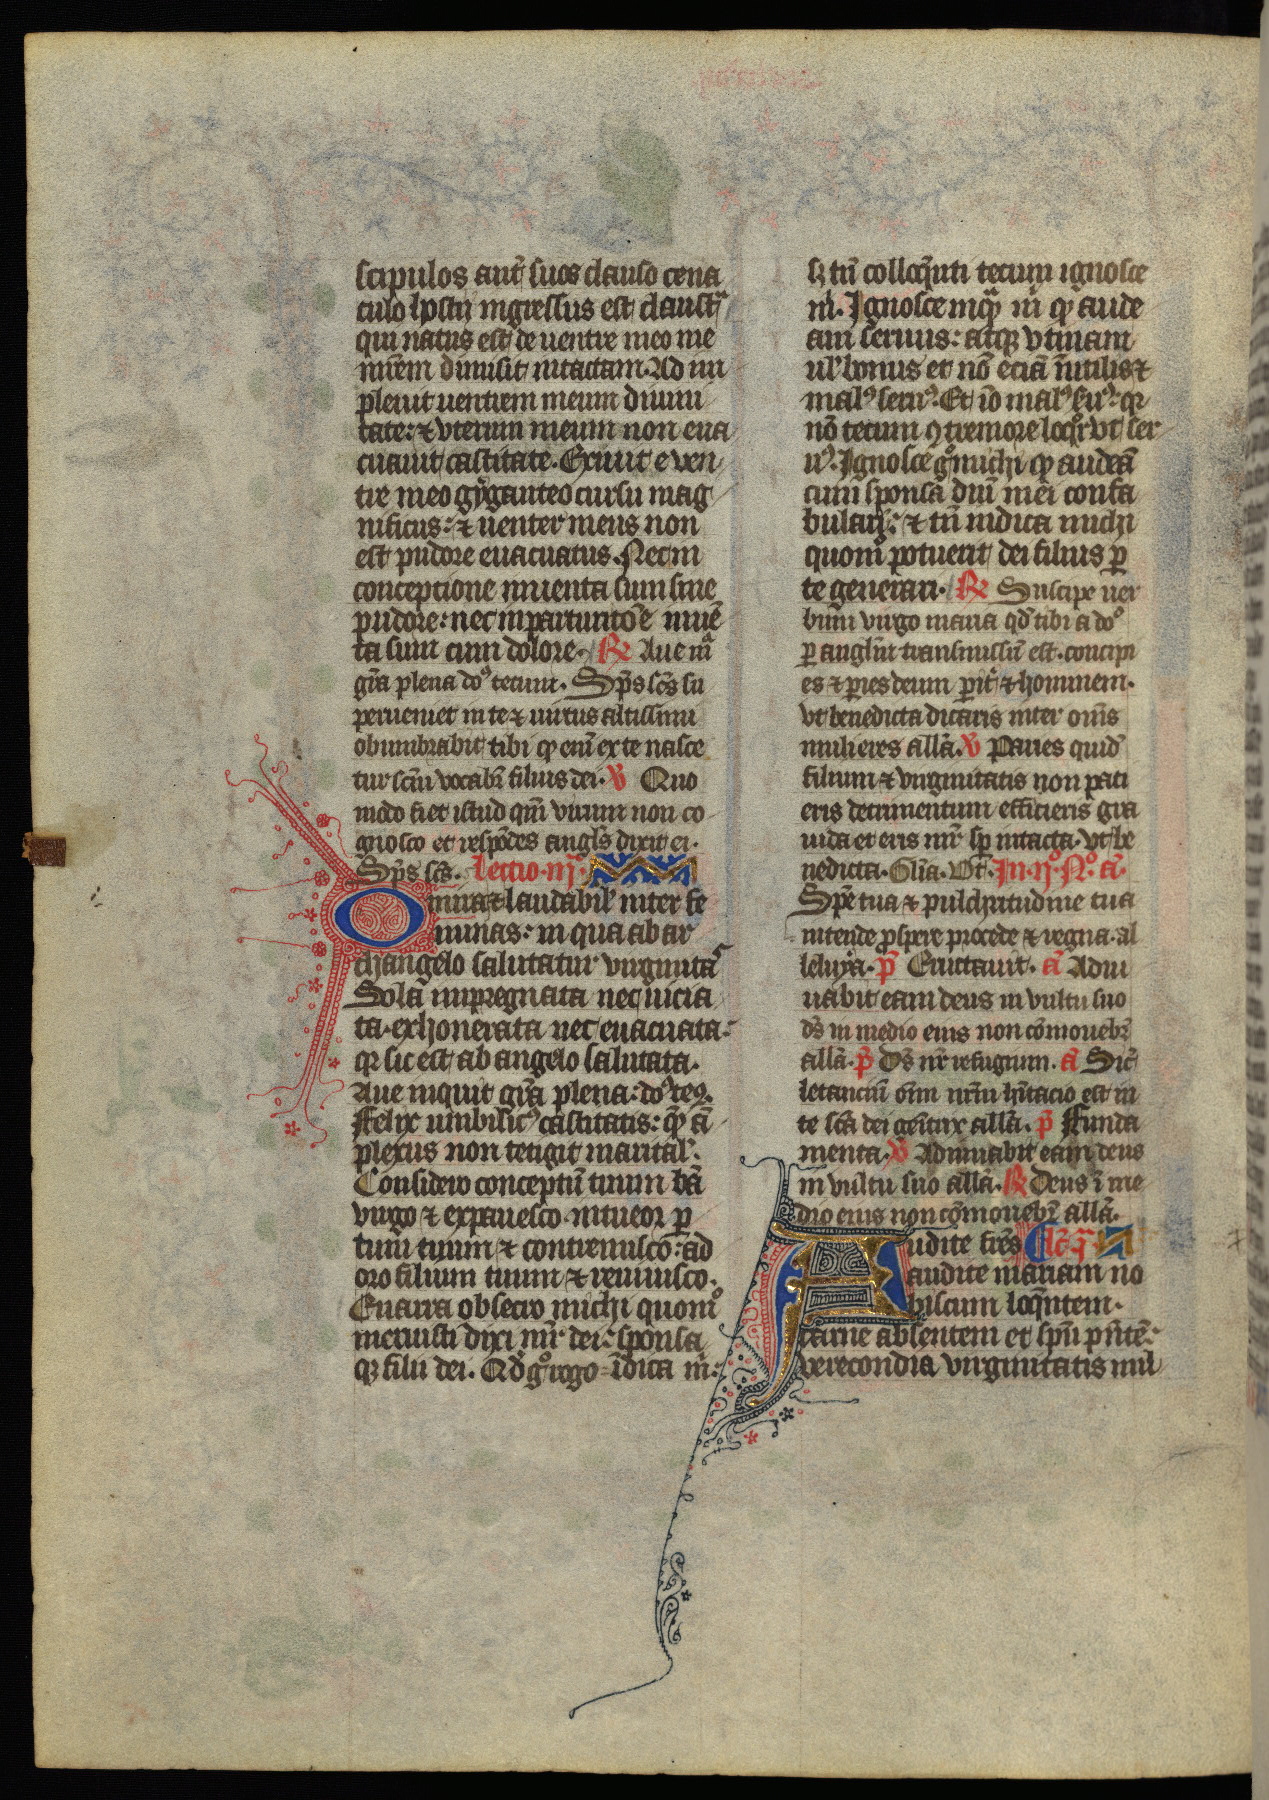 scipulos aut̄ suos clauso cena
culo ip̄siꝰ ingressus est clauſtͣ
qui natus est de uentre meo me
nirem dimisit intactam. Ad im
pleuit uentrem meum diuini
tate: ⁊ vterum meum non eua
cuauit castitate. Exiuit e ven
tre meo gyganteo cursu mag
nificus: ⁊ uenter meus non
est pudore euacuatus. Nec in
conceptione inuenta sum sine
pudore: nec in parturitōe inuē
ta sum cum dolore. ℟ Aue mͣ
gr̄a plena doꝰ tecum. Sp̄s sc̄s su
perueniet in te ⁊ uirtus altissimi
obumbrabit tibi qͦ eni ex te nasce
tur sc̄m vocabit̄ filius dei. ℣ Quo
modo fiet istud qm̄ virum non co
gnosco et respōdēs angl̄s dixit ei.
Sp̄s sc̄s. Lectio .iij.
O mira ⁊ laudabil' inter fe
minas: in qua ab ar
changelo salutatur virginitaˢ
Sola impregnata nec uicia
ta. exhonerata nec euacuata:
qr sic est ab angelo salutata.
Aue inquit gr̄a plena. doꝰ tecͫ.
Felix umbilicꝰ castitatis: qͫ ā
plexus non tetigit marital'.
Considero conceptū tuum bā
virgo ⁊ expauesco. intueor p̱
tum tuum ⁊ contremisco: ad
oro filium tuum ⁊ reuiuisco.
Enarra obsecro michi quomͦ
meruisti dixi mr̄ dei: sponsa
qꝫ filii dei. Qd̄ gͦ rogo īdica m:
sꝫ tn̄ colloq̄nti tecum ignosce
m. Ignosce inqͫ m qͦ aude
am seruus: atqꝫ vtinam
ul' bonus et nō eciā inutilis ⁊
malꝰ seruꝰ. Et iō malꝰ suꝰ: qr
nō tecum ꝯ tremore loqͬ vt ser
uꝰ. Ignosce gͦ michi qͦ audeā
cum sponsa dn̄i mei confa
bulari: ⁊ tn̄ indica michi
quomͦ potuerit dei filius p̱
te generari. ℟ Suscipe uer
bum virgo maria qd̄ tibi a doꝰ
p̱ anglm̄ transmissū est. concipi
es ⁊ paries deum parit̄ ⁊ hominem.
vt benedicta dicaris inter om̄s
mulieres all'a. ℣ Paries quid̄
filium ⁊ virginitatis non pati
eris detrimentum efficieris gra
uida et eris mr̄ sp̱ intacta. Vt be
nedicta. Gl'ia. Vt. In .ij. Nͦ. a.
Spē tua ⁊ pulchritudine tua
intende p̱spere procede ⁊ regna. al
leluya. p̄ Eructauit. a Adiu
uabit eam deus in vultu suo
ds̄ in medio eius non cōmouebit̄
all'a. p̄ Ds̄ nr̄ refugium. a Sic̄
letanciū om̄ nr̄m hitacio est in
te sc̄a dei genitrix all'a. p̄ Funda
menta. ℣ Adiuuabit eam deus
in vultu suo all'a. ℟ Deus ī me
dio eius non cōmouebit̄ all'a.
Audite fr̄es
audite mariam no
biscum loq̄ntem.
carne absentem et sp̄ū p̄ntē.
verecondia virginitatis mil'